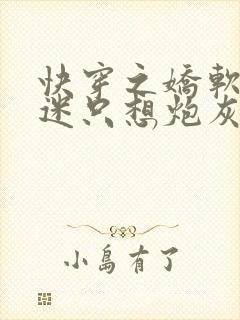 快穿之嬌軟
迷只想炮灰
小島有了